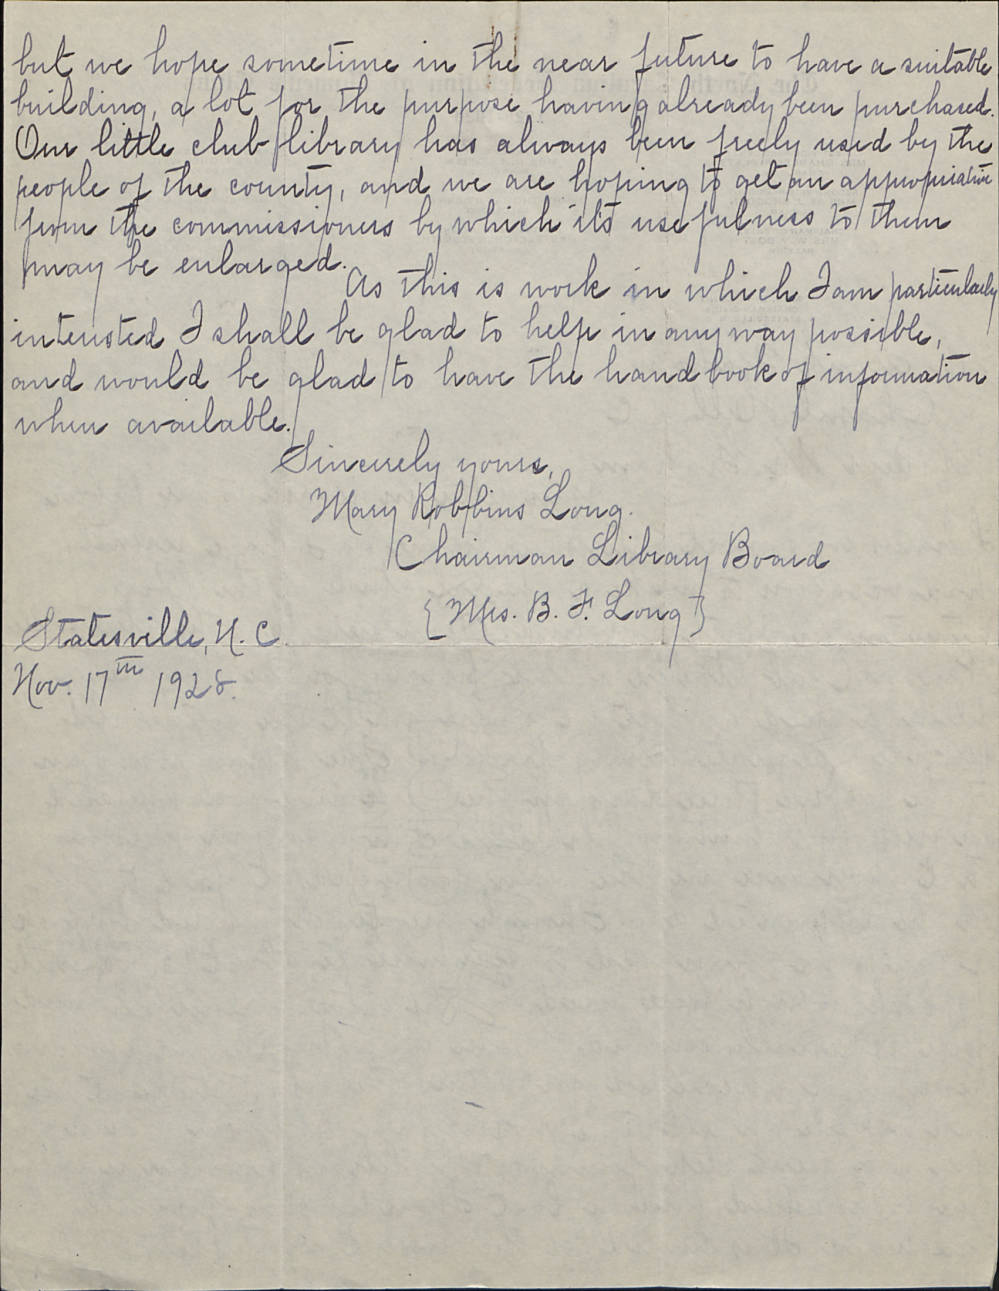 but we hope sometime in the near future to have a suitable
building, a lot for the purpose having already been purchased.
Our little club library has always been freely used by the
people of the county, and we are hoping to get an appropriation
from the commissioners by which it's usefulness to them
may be enlarged.
As this is work in which I am particularly
interested I shall be glad to help in any way possible,
and would be glad to have the hand book of information
when available.
Sincerely yours,
Mary Robbins Long.
Chairman Library Board
{Mrs. B. F. Long}
Statesville, N. C.
Nov. 17th 1928.